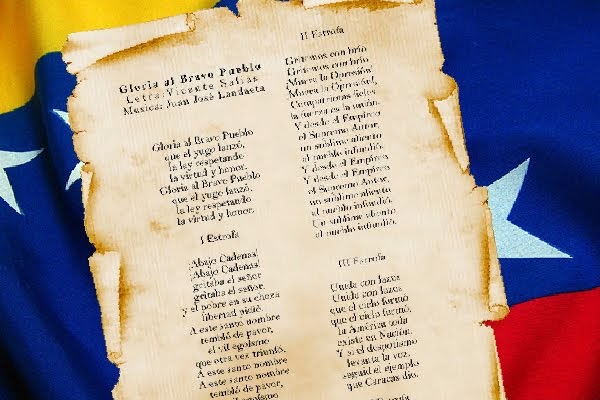 Gloria al Bravo Pueblo
Letra: Vicente Salias
Musica: Juan José Landaeta
Gloria al Bravo Pueblo
que el yugo lanzó,
la ley respetando
la virtud y honor.
Gloria al Bravo Pueblo
que el yugo lanzó,
la ley respetando
la virtud y honor.
I Estrofa
¡Abajo Cadenas!
¡Abajo Cadenas!
gritaba el señor
gritaba el señor,
y el pobre en su choza
libertad pidió.
A este santo nombre
tembló de pavor,
el vil egoísmo
que otra vez triunfó.
A este santo nombre
A este santo nombre
tembló de pavor,
egoísmo
II Estrofa
Gritemos con brío
Gritemos con brío
¡Muera la Opresión!
¡Muera la Opresión!,
Compatriotas fieles
la fuerza es la unión.
Y desde el Empíreo
el Supremo Autor,
un sublime aliento
al pueblo infundió.
Y desde el Empíreo
Y desde el Empíreo
el Supremo Autor,
un sublime aliento
al pueblo infundió.
Un sublime aliento
al pueblo infundió.
III Estrofa
Unida con lazos
Unida con lazos
que el cielo formó
que el cielo formó,
la América toda
existe en Nación.
Y si el despotismo
levanta la voz,
seguid el ejemplo
que Caracas dio.
Estrofa